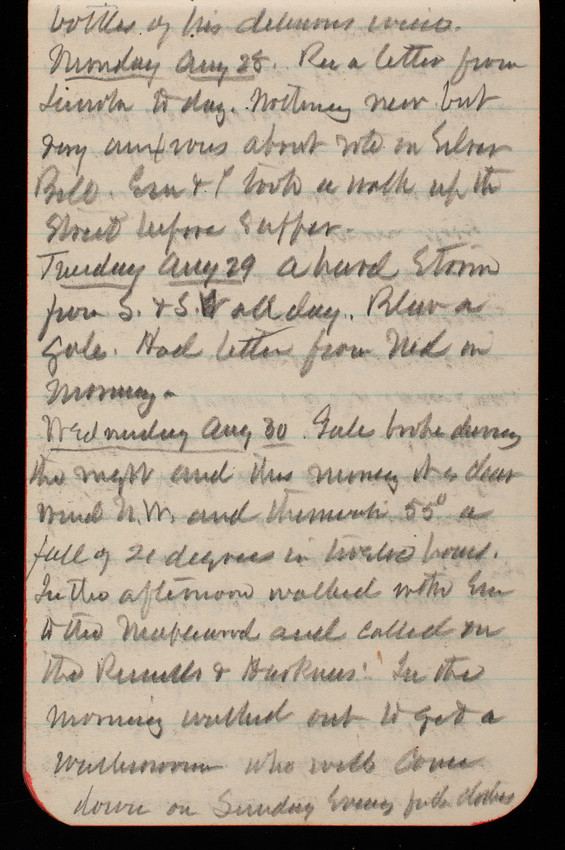 bottles of his delicious wine.
Monday Aug 28. Rec a letter from
Lincoln to day. Nothing new but
very anxious about vote on Silver
Bill. Em & I took a walk up the
Street before Supper.
Tuesday Aug 29 a hard Storm
from S. & S.W all day. Blew a
gale. Had letter from Ned in
Morning.
Wednesday Aug 30. Gale broke during
the night and this morning it is clear
wind N.W. and thermom 55° a
fall of 20 degrees in twelve hours.
In the afternoon walked with Em
to the Maplewood and called on
the &
In the
morning walked out to get a
washwoman who will come
down on Sunday Evening for clothes